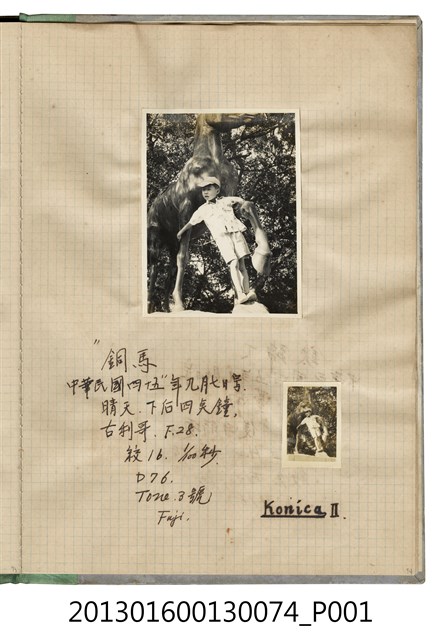 "銅馬
中華民國四五"年九月七日号.
晴天.下后四点鐘,
古利哥.F.28.
絞16. 1/100秒.
D76.
Tone.3號
Fuji.
Konica II.
201301600130074_P001